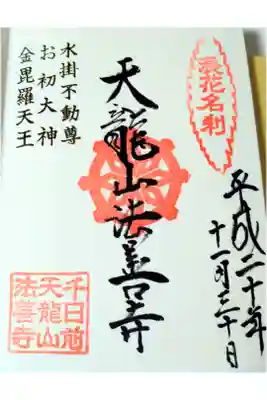 浪花名刹
平成二十年
十一月三十日
天龍山法善寺
水掛不動尊
お初大神
金毘羅天王
千日前
天龍山
法善寺